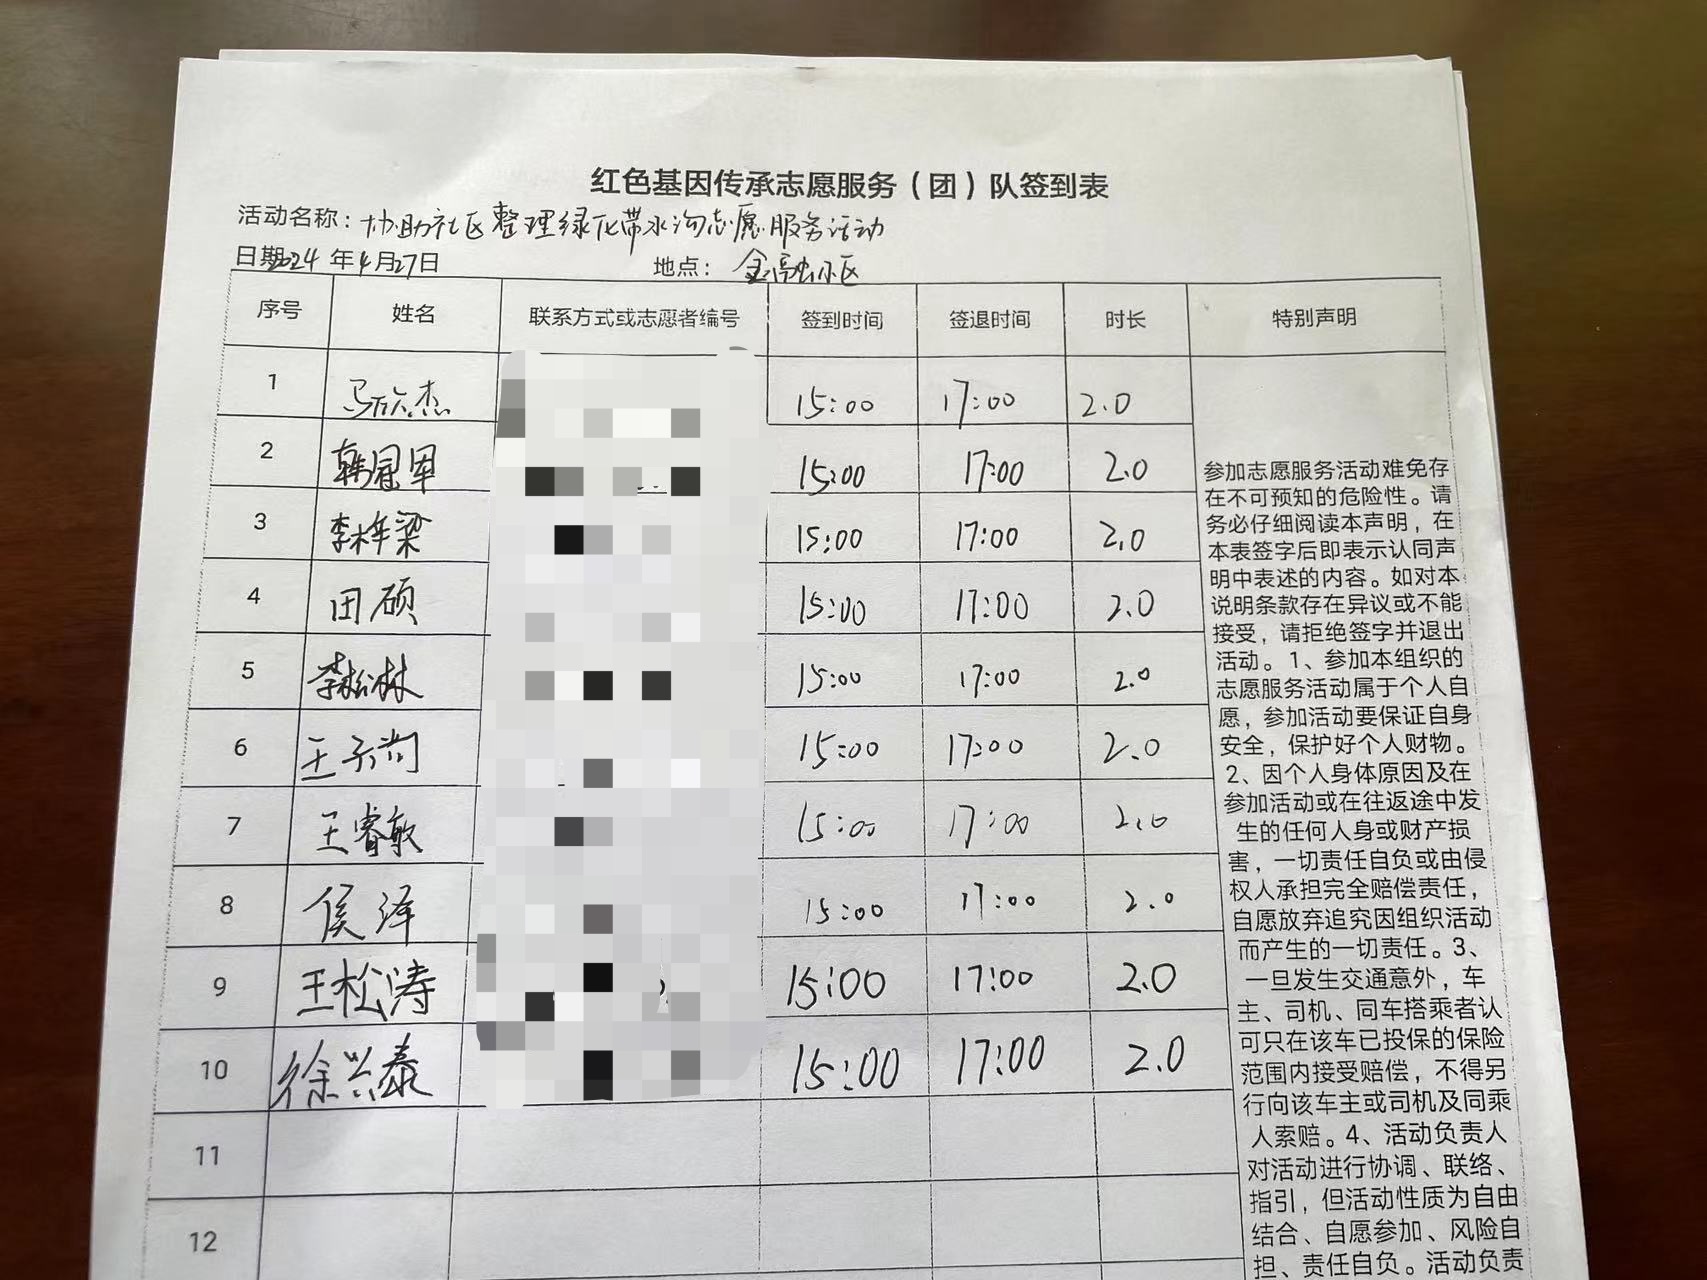 红色基因传承志愿服务（团）队签到表
活动名称：协助社区整理绿化带水沟志愿服务活动
日期2024年4月27日 地点：金融小区
序号 姓名 联系方式或志愿者编号 签到时间 签退时间 时长 特别声明
1 马欣杰 15:00 17:00 2.0
2 韩冠军 15:00 17:00 2.0
3 李梁 15:00 17:00 2.0
4 田硕 15:00 17:00 2.0
5 李松林 15:00 17:00 2.0
6 王子尚 15:00 17:00 2.0
7 王睿敏 15:00 17:00 2.0
8 侯泽 15:00 17:00 2.0
9 王松涛 15:00 17:00 2.0
10 徐兴泰 15:00 17:00 2.0
11
12
参加志愿服务活动难免存
在不可预知的危险性。请
务必仔细阅读本声明，在
本表签字后即表示认同声
明中表述的内容。如对本
说明条款存在异议或不能
接受，请拒绝签字并退出
活动。1、参加本组织的
志愿服务活动属于个人自
愿，参加活动要保证自身
安全，保护好个人财物。
2、因个人身体原因及在
参加活动或在往返途中发
生的任何人身或财产损
害，一切责任自负或由侵
权人承担完全赔偿责任，
自愿放弃追究因组织活动
而产生的一切责任。3、
一旦发生交通意外，车
主、司机、同车搭乘者认
可只在该车已投保的保险
范围内接受赔偿，不得另
行向该车主或司机及同乘
人索赔。4、活动负责人
对活动进行协调、联络、
指引，但活动性质为自由
结合、自愿参加、风险自
担、责任自负。活动负责